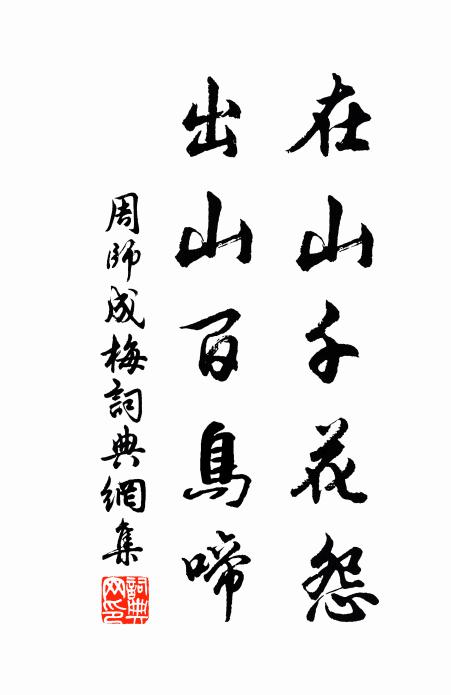 在山千花怨
出山百鳥啼
周師成梅詞典網集
詞典網印